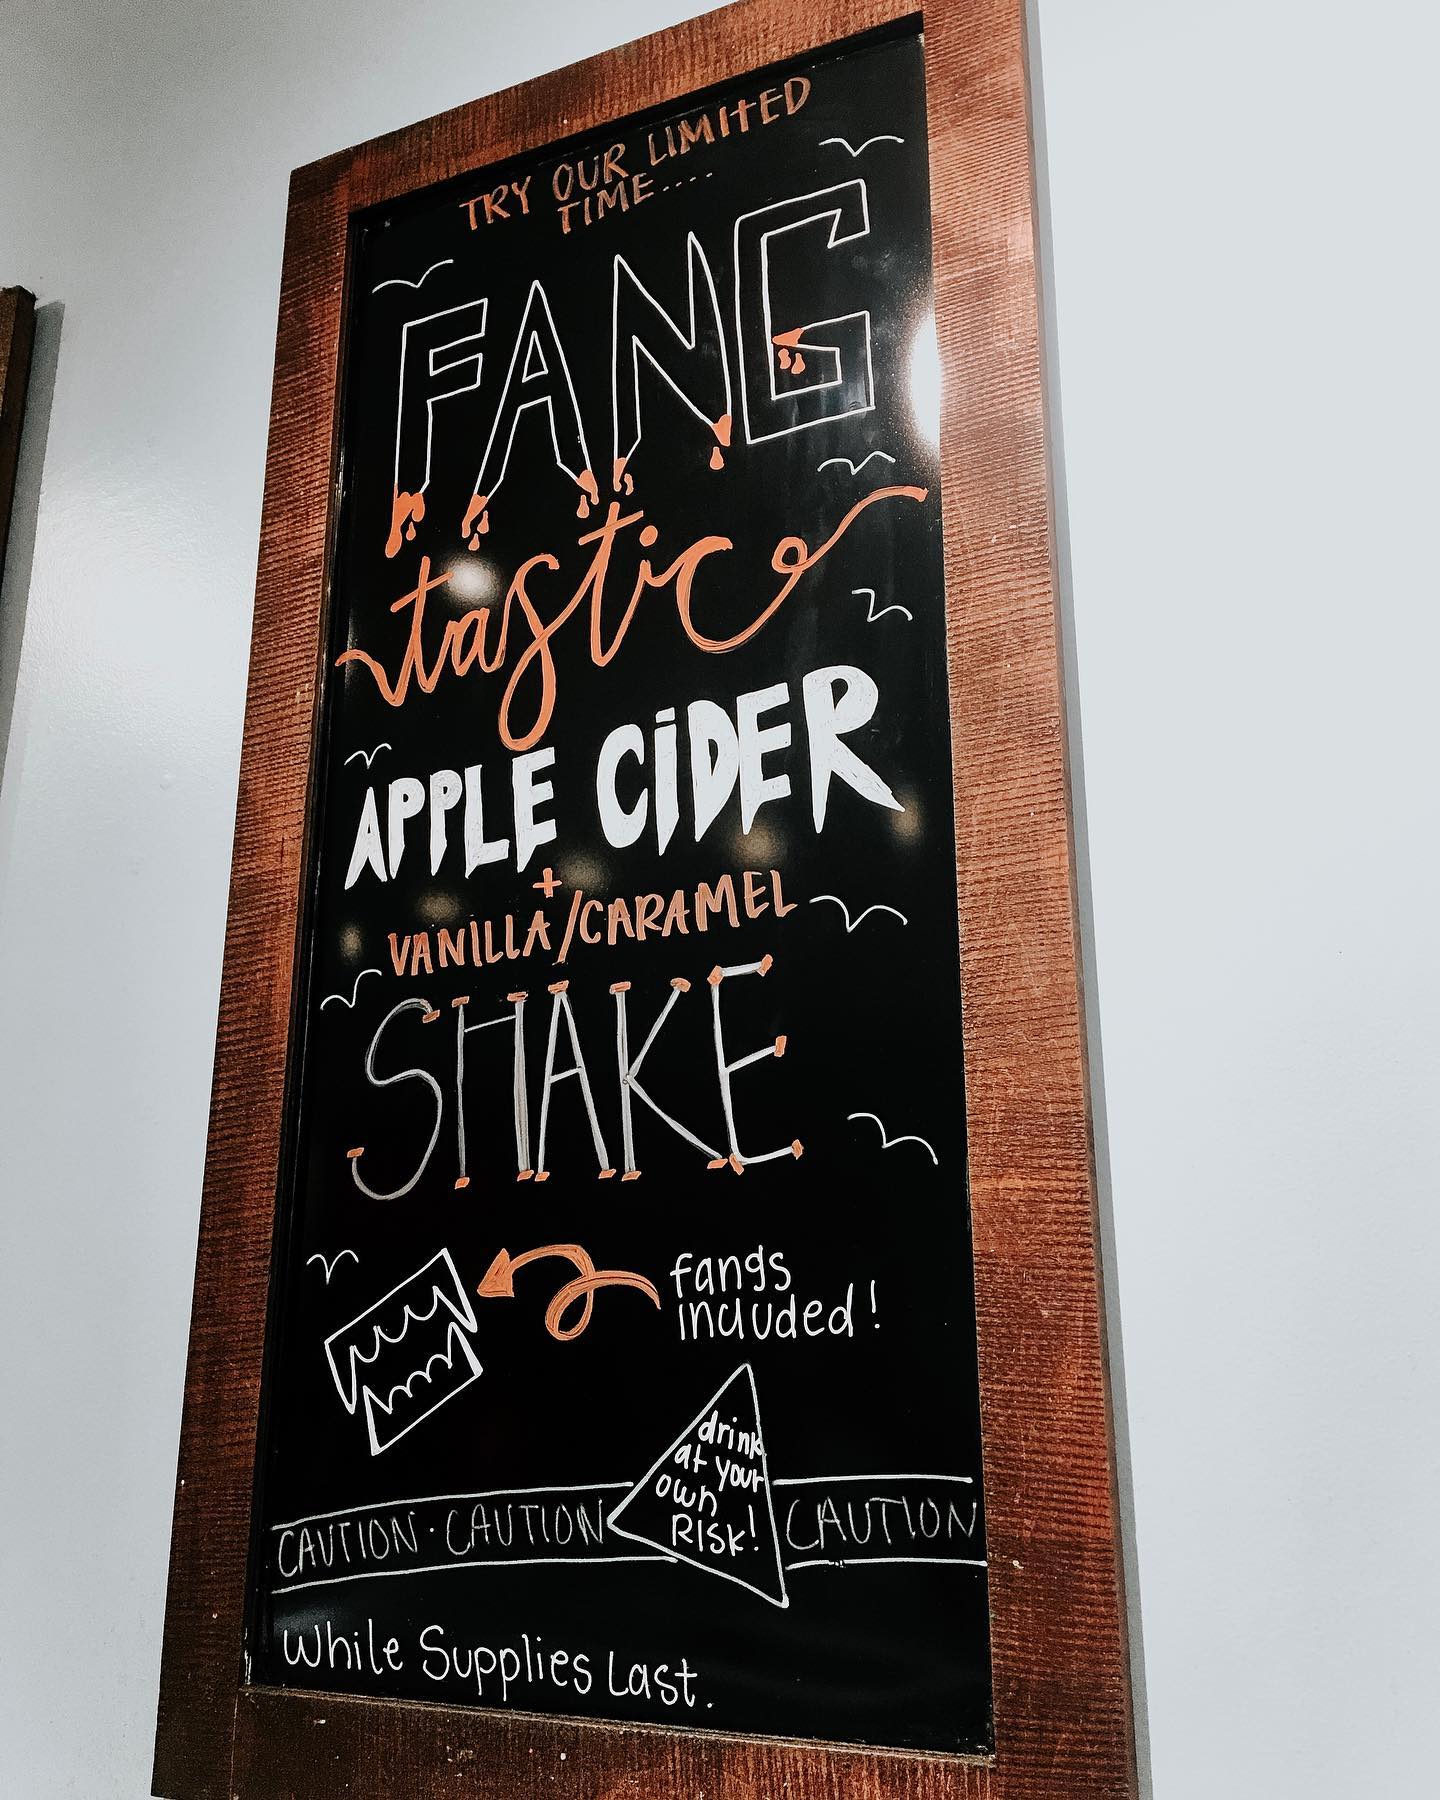 TRY OUR LIMITED
TIME....
FANG
tastic
APPLE CiDER
+
VANILLA/CARAMEL
SHAKE
fangs
included!
drink
at your
own
RISK!
CAUTION · CAUTION CAUTION
While Supplies Last.